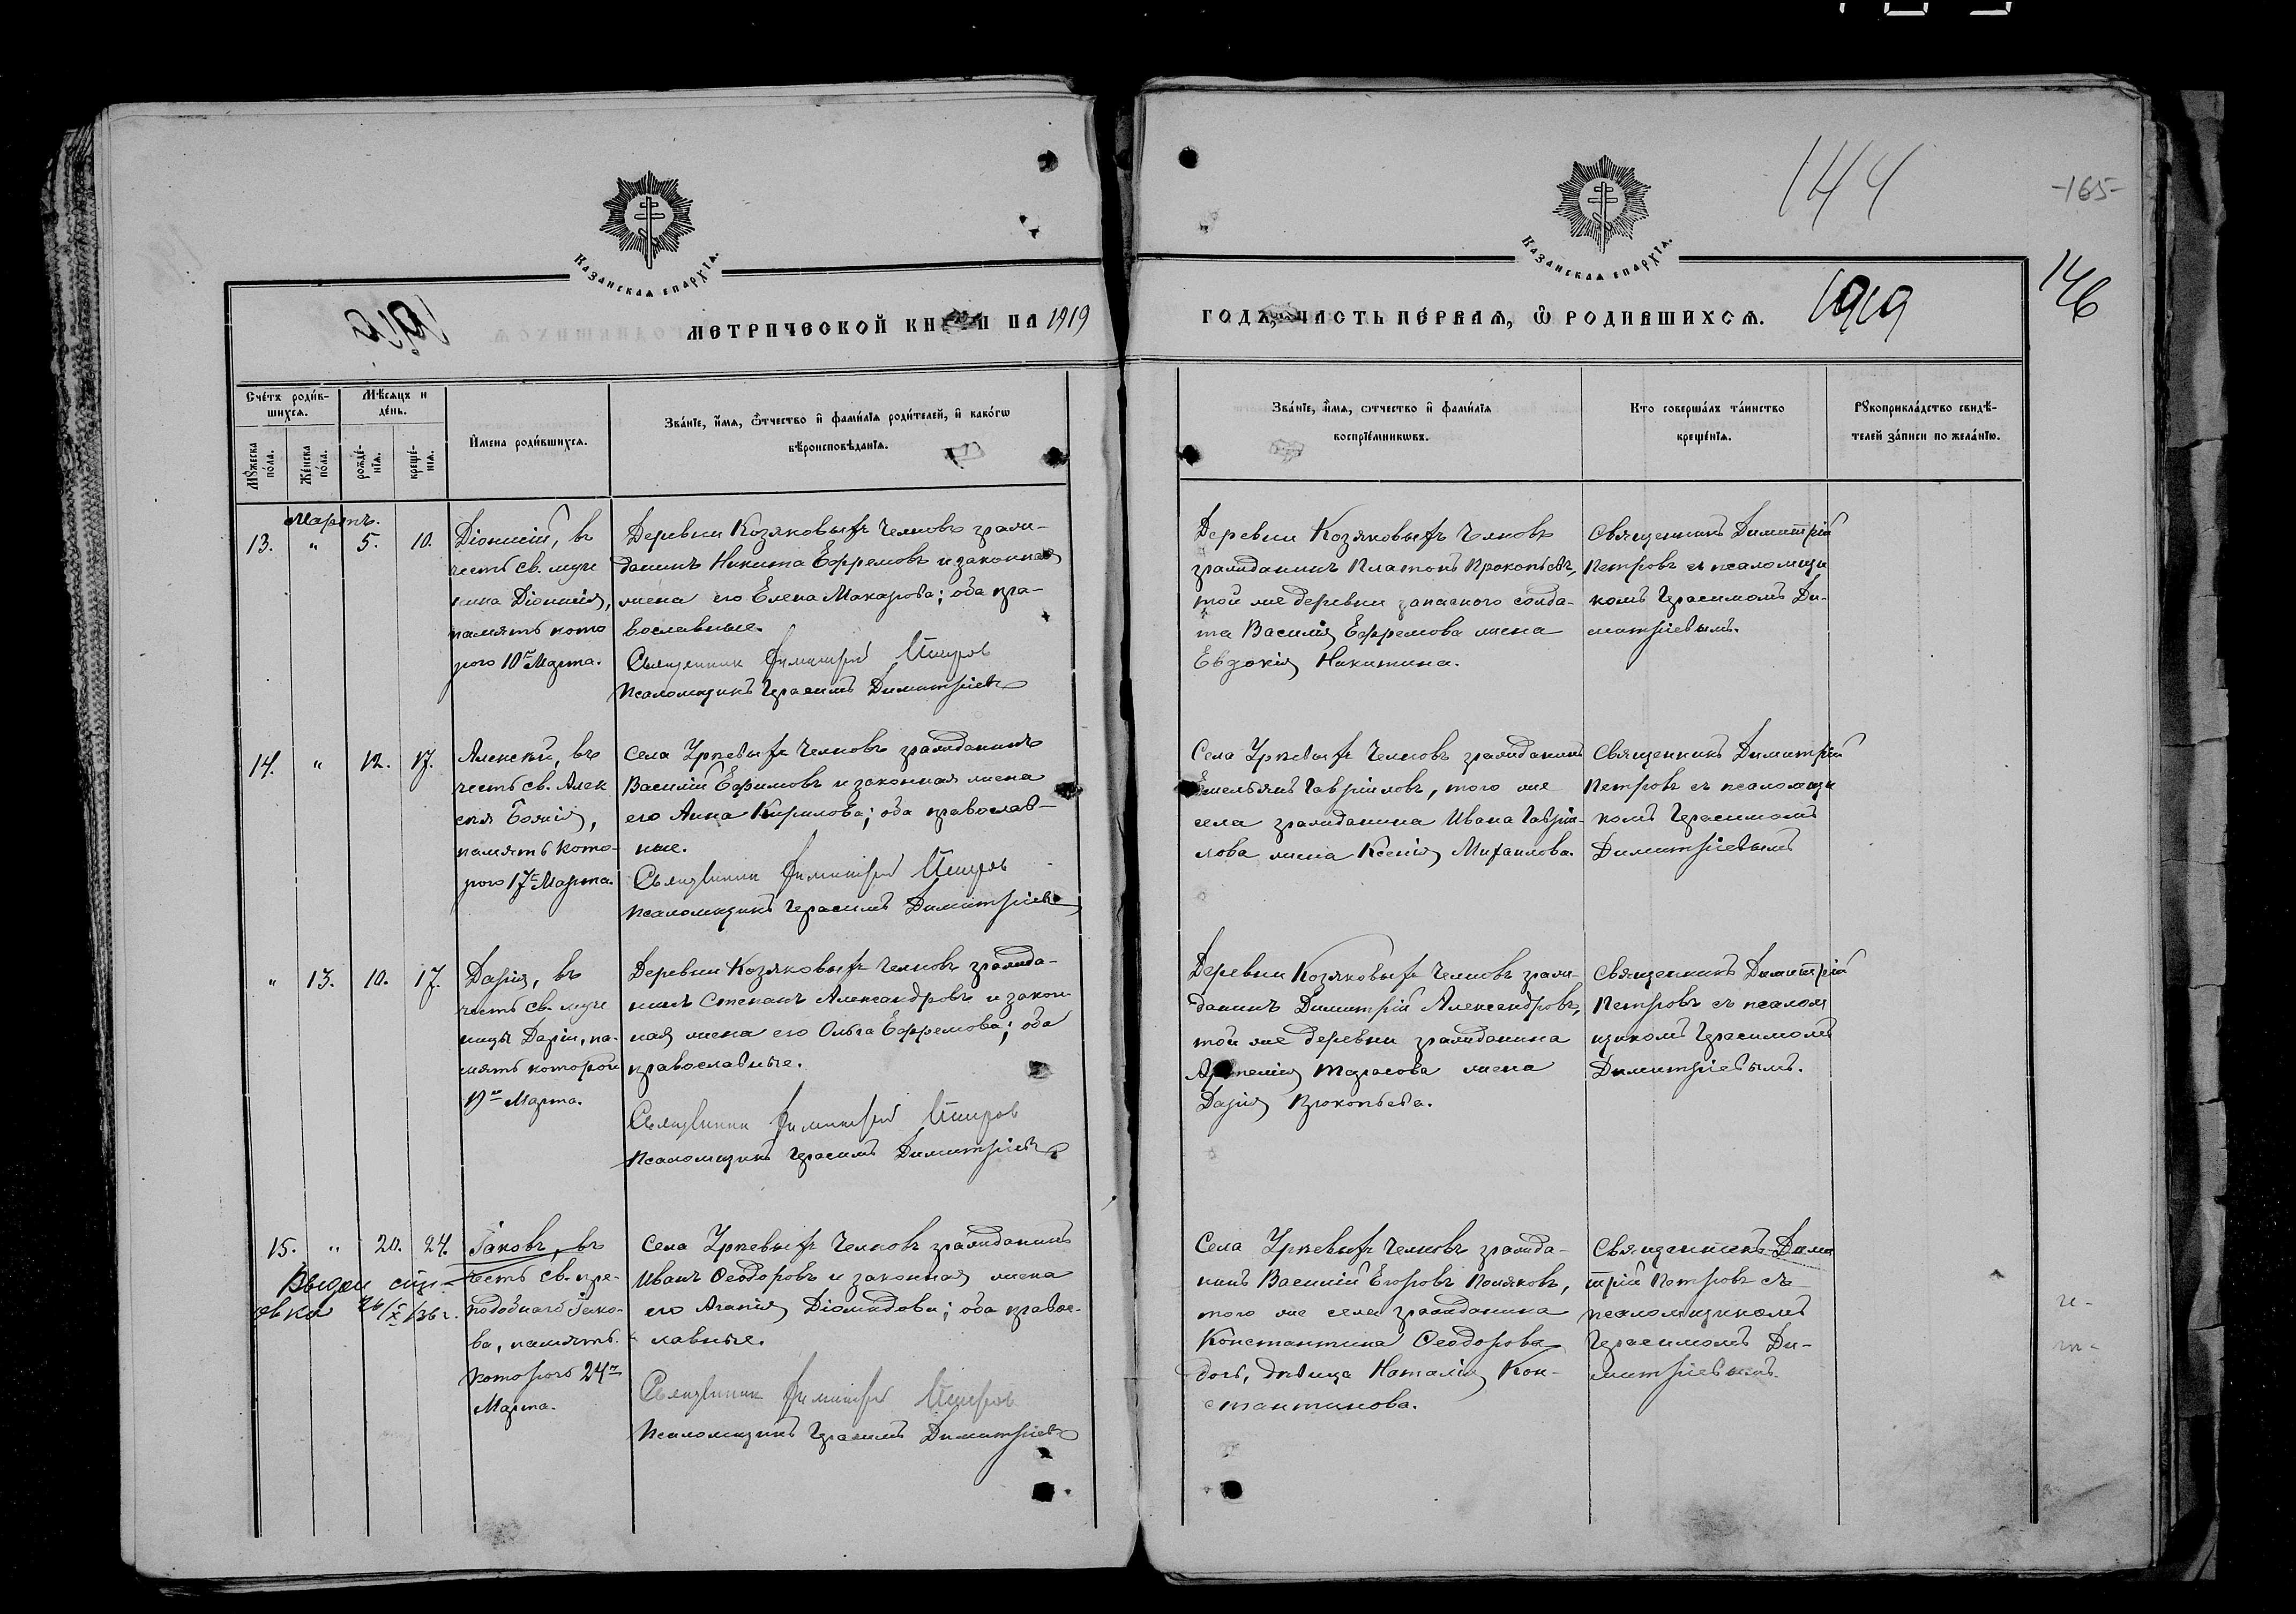 144
-165-
146
Казанская епархїа.
Казанская епархїа.
1919
МЕТРИЧЕСКОЙ КНИГИ НА 1919
ГОДЪ, ЧАСТЬ ПЕРВАЯ, Ѿ РОДИВШИХСЯ.
1919
Счетъ родив-
шихся.
Мѣсяцъ и
день.
Мꙋжеска
пола.
Женска
пола.
рожде-
нїя.
креще-
нїя.
Имена родившихся.
Званїе, имя, ѻтчество и фамилїя родителей, и какогѡ
вѣроисповѣданїя.
Званїе, имя, ѻтчество и фамилїя
воспрїемникѡвъ.
Кто совершалъ таинство
крещенїя.
Рꙋкоприкладство свидѣ-
телей записи по желанїю.
Мартъ.
13. " 5. 10.
Діонисій, въ
честь св. муче
ника Діонисія,
память кото
рого 10го Марта.
Деревни Козяковыхъ Челновъ гражи-
данинъ Никита Ефремовъ и законная
жена его Елена Макарова; оба пра-
вославные.
Священник Димитрий Петров
Псаломщикъ Герасимъ Димитріевъ
Деревни Козяковыхъ Челновъ
гражданинъ Платонъ Прокопьевъ,
той же деревни запасного солда-
та Василія Ефремова жена
Евдокія Никитина.
Священникъ Димитрій
Петровъ съ псаломщи
комъ Герасимомъ Ди-
митріевымъ.
14. " 12. 17.
Алексій, въ
честь св. Алек
сія Божія,
память кото-
рого 17го Марта.
Села Уркевыхъ Челновъ гражданинъ
Василій Ефимовъ и законная жена
его Анна Кирилова; оба православ-
ные.
Священник Димитрий Петров
Псаломщикъ Герасимъ Димитріевъ
Села Уркевыхъ Челновъ гражданинъ
Емельянъ Гавриловъ, того же
села гражданина Ивана Гаври-
лова жена Ксенія Михаилова.
Священникъ Димитрій
Петровъ съ псаломщи
комъ Герасимомъ
Димитріевымъ
" 13. 10. 17.
Дарія, въ
честь св. муче
ницы Даріи, па-
мять которой
19го Марта.
Деревни Козяковыхъ Челновъ гражда-
нинъ Степанъ Александровъ и закон-
ная жена его Ольга Ефремова; оба
православные.
Священник Димитрий Петров
Псаломщикъ Герасимъ Димитріевъ
Деревни Козяковыхъ Челновъ граж-
данинъ Димитрій Александровъ,
той же деревни гражданина
Артемія Тарасова жена
Дарія Прокопьева.
Священникъ Димитрій
Петровъ съ псалом
щикомъ Герасимомъ
Димитріевымъ.
15. " 20. 24.
Выдан спр-
авка 26/X/36 г.
Іаковъ, въ
честь св. пре-
подобнаго Іако-
ва, память
которого 24го
Марта.
Села Уркевыхъ Челновъ гражданинъ
Иванъ Ѳеодоровъ и законная жена
его Агапія Діомидова; оба правос-
лавные.
Священник Димитрий Петров
Псаломщикъ Герасимъ Димитріевъ
Села Уркевыхъ Челновъ гражда-
нинъ Василій Егоровъ Поляковъ,
того же села гражданина
Константина Ѳеодорова
дочь, дѣвица Наталія Кон-
стантинова.
Священникъ Дими
трій Петровъ съ
псаломщикомъ
Герасимомъ Ди-
митріевымъ.